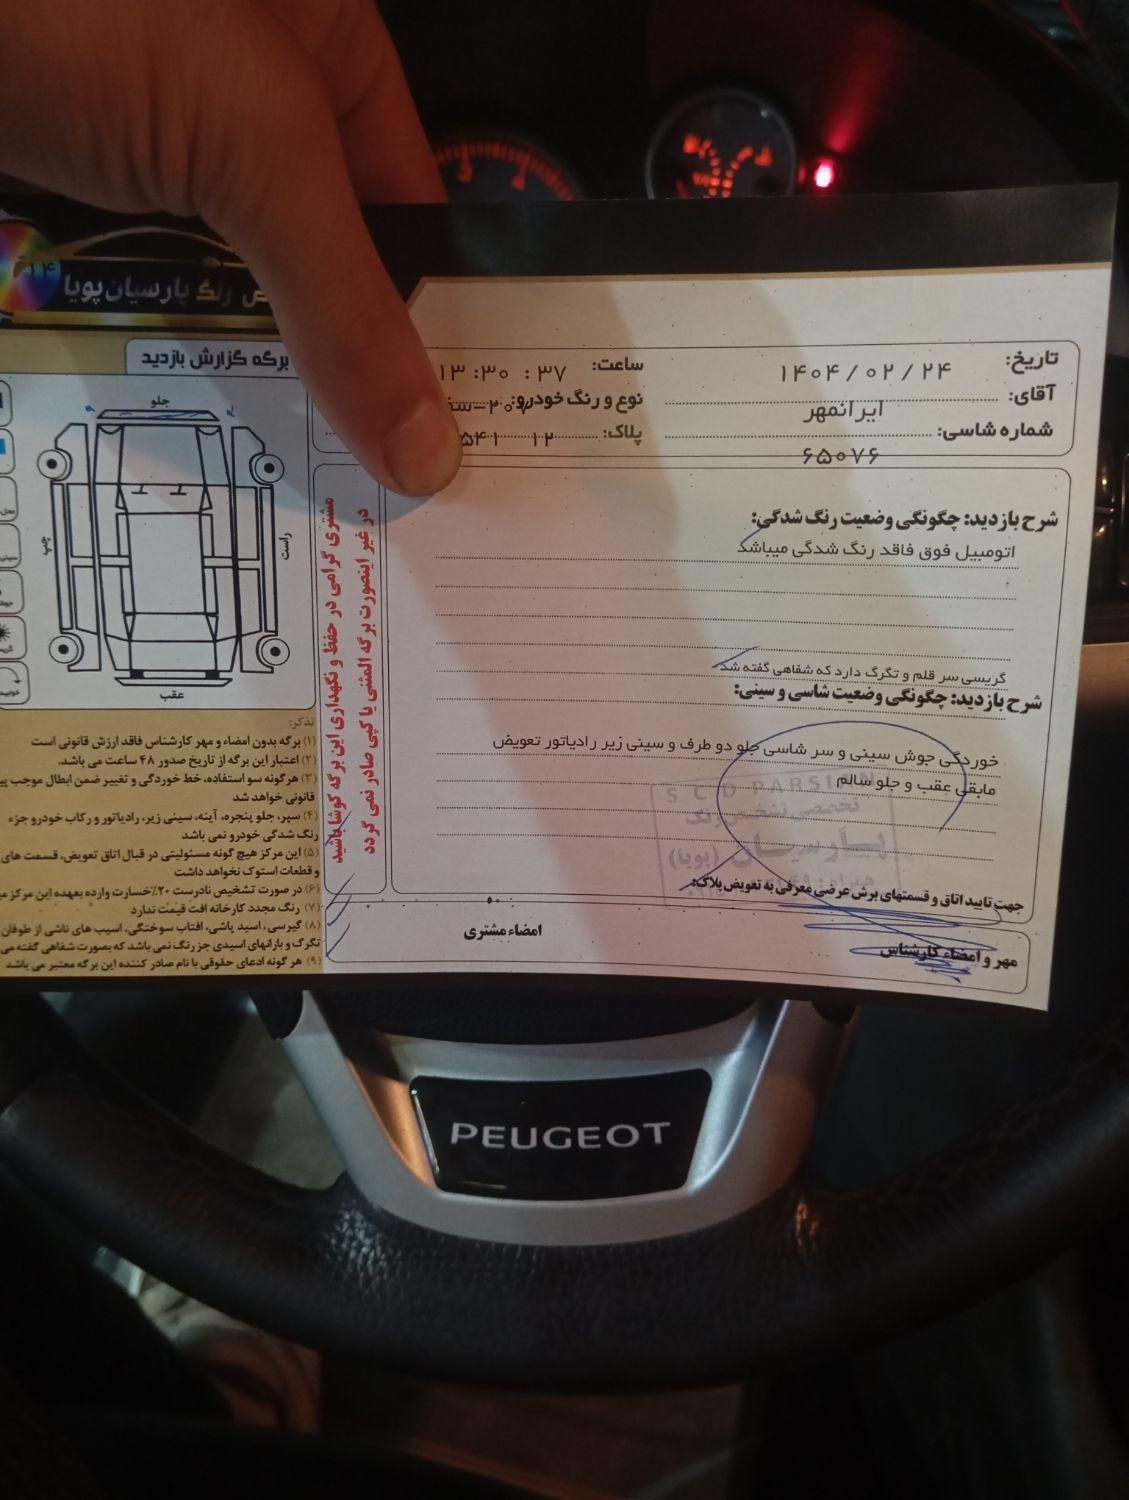 ۱۴
رنگ پارسیان پویا
برگه گزارش بازدید
تاریخ: ۱۴۰۴/۰۲/۲۴
ساعت: ۱۳:۳۰:۳۷
آقای: ایرانمهر
نوع و رنگ خودرو: ۲۰۷-
شماره شاسی: ۶۵۰۷۶
پلاک: ۱۲ ۵۴۱
جلو
راست
چپ
عقب
مشتری گرامی در حفظ و نگهداری این برگه کوشا باشید
در غیر اینصورت برگه المثنی یا کپی صادر نمی گردد
شرح بازدید: چگونگی وضعیت رنگ شدگی:
اتومبیل فوق فاقد رنگ شدگی میباشد
گریسی سر قلم و تگرگ دارد که شفاهی گفته شد
شرح بازدید: چگونگی وضعیت شاسی و سینی:
خوردگی جوش سینی و سر شاسی جلو دو طرف و سینی زیر رادیاتور تعویض
مابقی عقب و جلو سالم
S C D PARSIAN
تخصصی تشخیص رنگ
پارسیان (پویا)
همراه:
جهت تایید اتاق و قسمتهای برش عرضی معرفی به تعویض پلاک:
مهر و امضاء کارشناس
امضاء مشتری
تذکر:
۱) برگه بدون امضاء و مهر کارشناس فاقد ارزش قانونی است
۲) اعتبار این برگه از تاریخ صدور ۴۸ ساعت می باشد.
۳) هرگونه سو استفاده، خط خوردگی و تغییر ضمن ابطال موجب
قانونی خواهد شد
۴) سپر، جلو پنجره، آینه، سینی زیر، رادیاتور و رکاب خودرو جزء
رنگ شدگی خودرو نمی باشد
۵) این مرکز هیچ گونه مسئولیتی در قبال اتاق تعویض، قسمت های
و قطعات استوک نخواهد داشت
۶) در صورت تشخیص نادرست ۲۰٪خسارت وارده بعهده این مرکز
۷) رنگ مجدد کارخانه افت قیمت ندارد
۸) گیرسی، اسید پاشی، افتاب سوختگی، اسیب های ناشی از طوفان
تگرگ و بارانهای اسیدی جز رنگ نمی باشد که بصورت شفاهی گفته می
۹) هر گونه ادعای حقوقی با نام صادر کننده این برگه معتبر می باشد
PEUGEOT